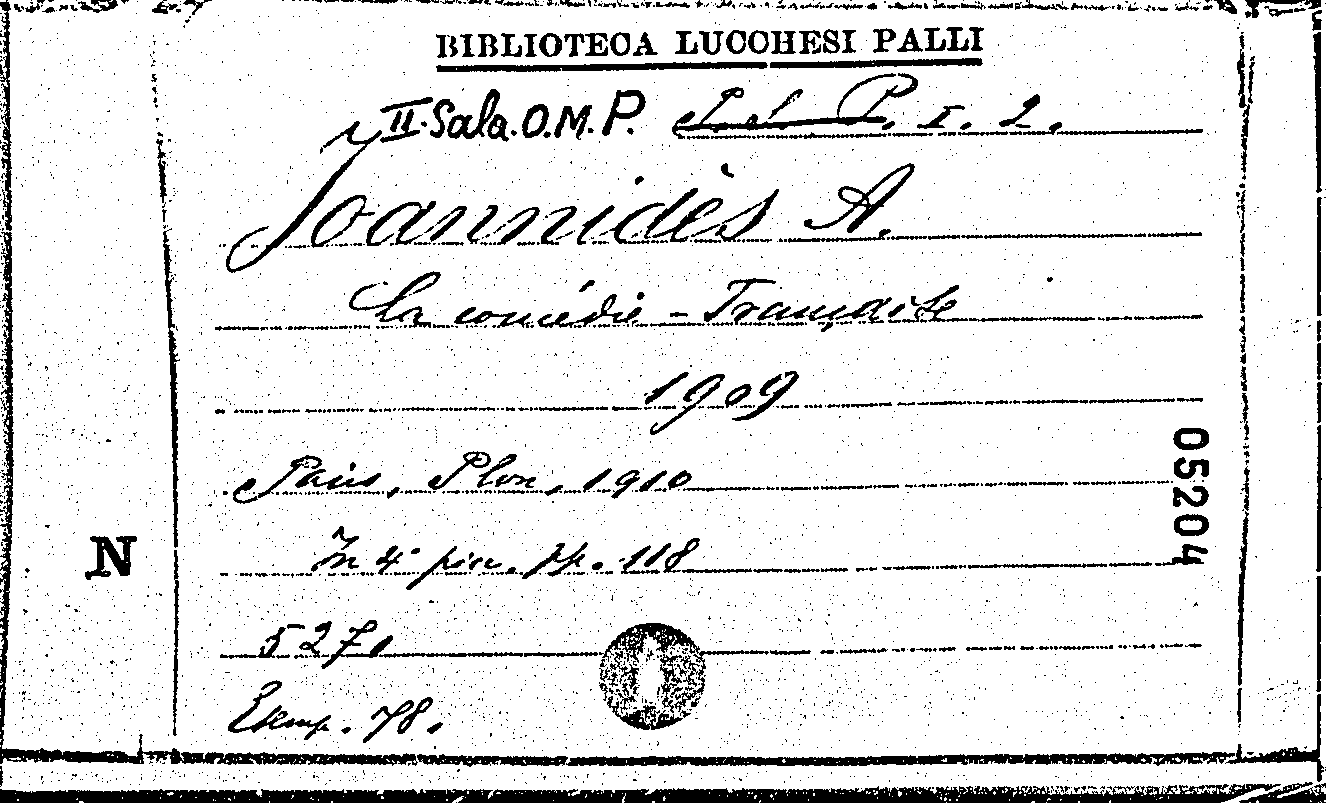 BIBLIOTECA LUCCHESI PALLI
II. Sala. O.M.P. I. 2.
Joannidès A.
La comédie - Française
1909
Paris, Plon, 1910
In 4° picc. pp. 118
5271
Esemp. 78.
N
05204